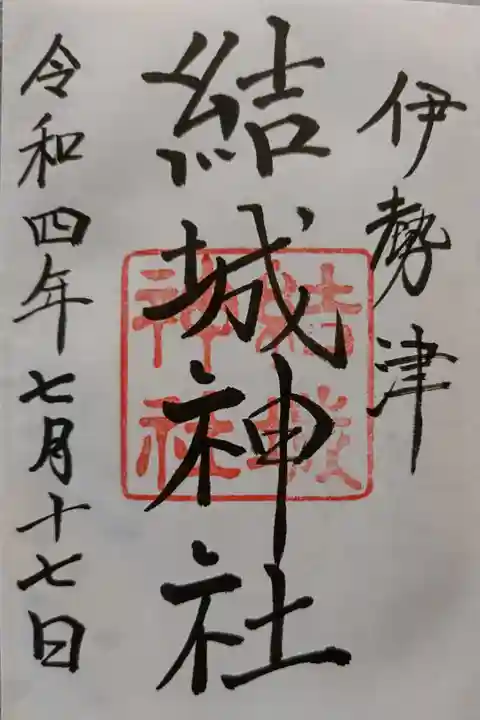 伊勢津
結城神社
結城
神社
令和四年七月十七日